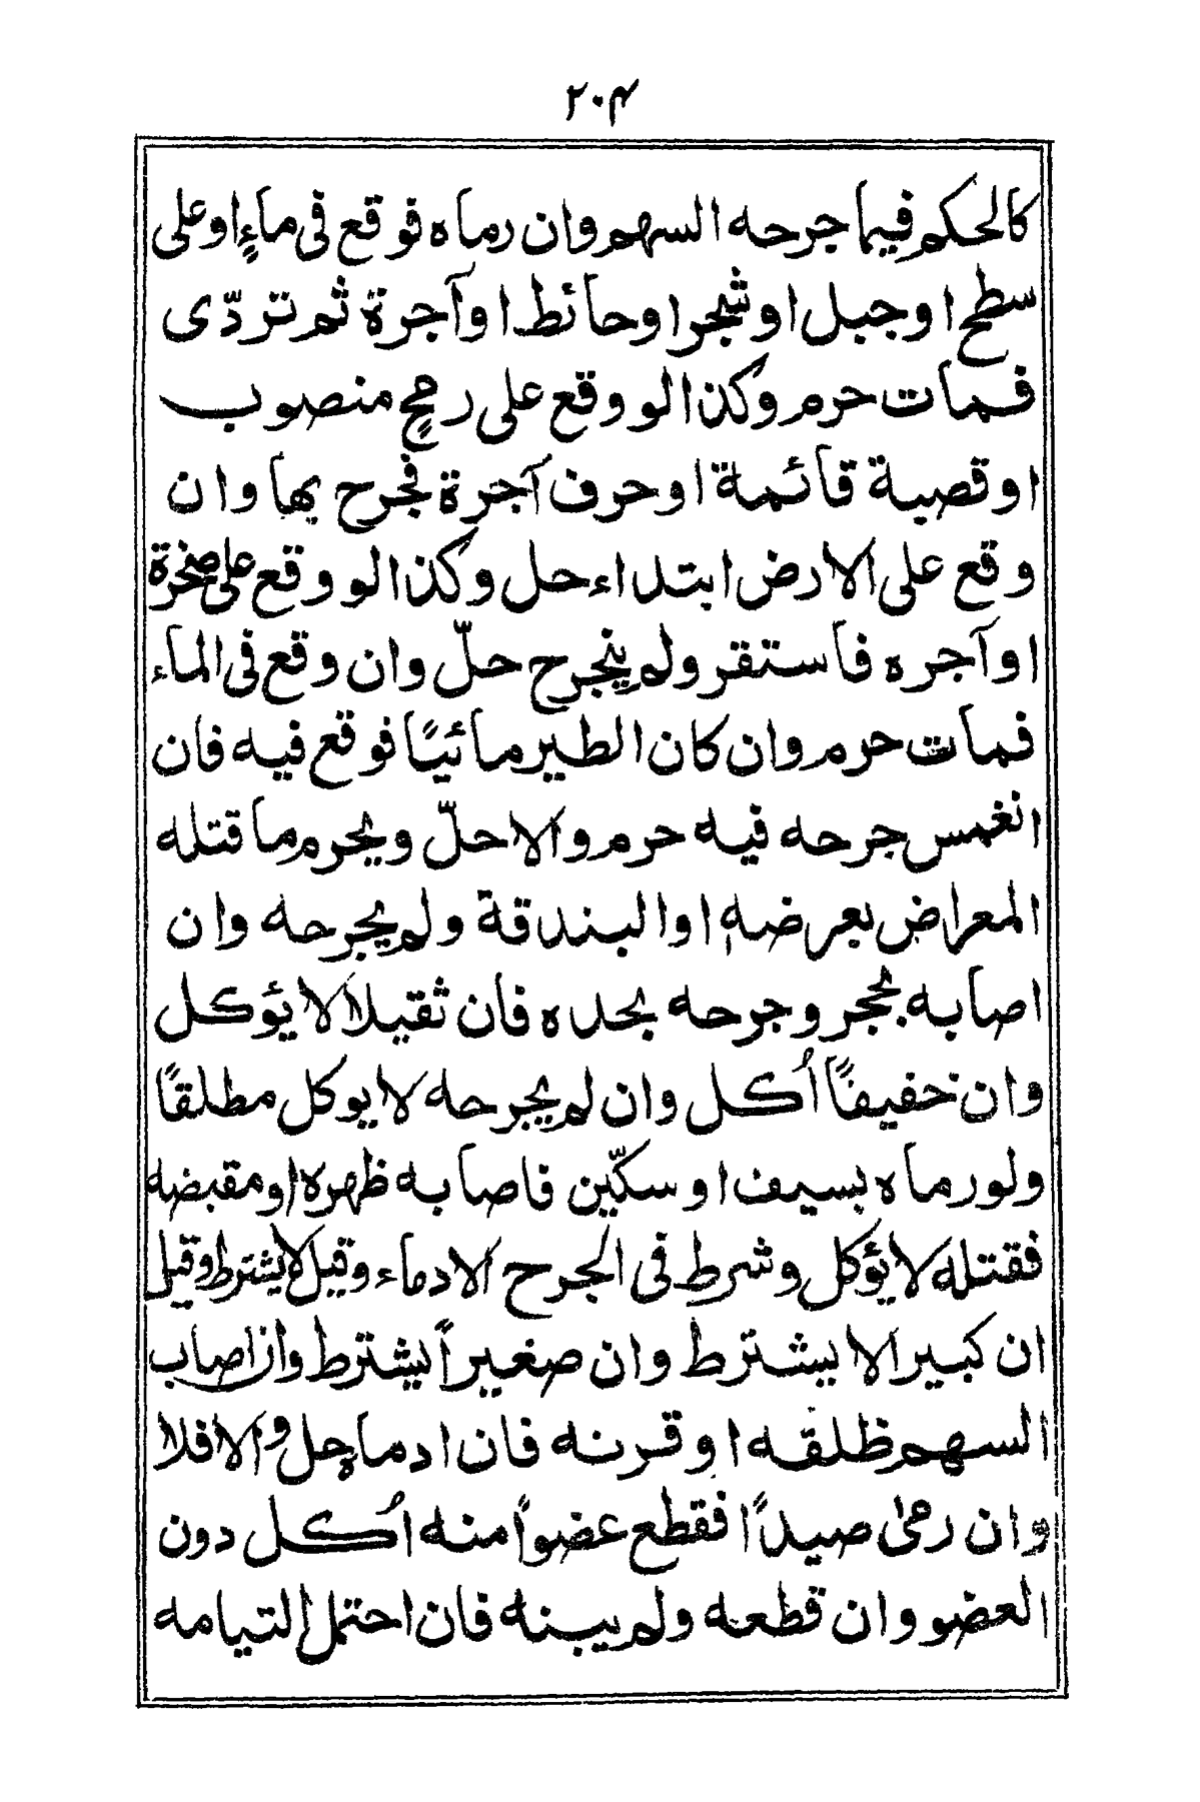 ٢٠٤
كالحكم فيما جرحه السهم وان رماه فوقع فى ماءٍ او على
سطح او جبل او شجر او حائط او آجرة ثم تردّى
فمات حرم وكذا لو وقع على رمحٍ منصوب
او قصبة قائمة او حرف آجرة فجرح بها وان
وقع على الارض ابتداء حل وكذا لو وقع على صخرة
او آجره فاستقر ولم ينجرح حلّ وان وقع فى الماء
فمات حرم وان كان الطير مائيًا فوقع فيه فان
انغمس جرحه فيه حرم والا حلّ ويحرم ما قتله
المعراض بعرضهٖ او البندقة ولم يجرحه وان
اصابه بحجر وجرحه بحده فان ثقيلا لا يؤكل
وان خفيفًا اُكل وان لم يجرحه لا يوكل مطلقًا
ولو رماه بسيف او سكّين فاصابه ظهره او مقبضه
فقتله لا يؤكل وشرط فى الجرح الادماء وقيل لا يشترط وقيل
ان كبيرا لا يشترط وان صغيراً يشترط وان اصاب
السهم ظلفه او قرنه فان ادماه حل والا فلا
وان رمىٰ صيدًا فقطع عضواً منه اُكل دون
العضو وان قطعه ولم يبنه فان احتمل التيامه